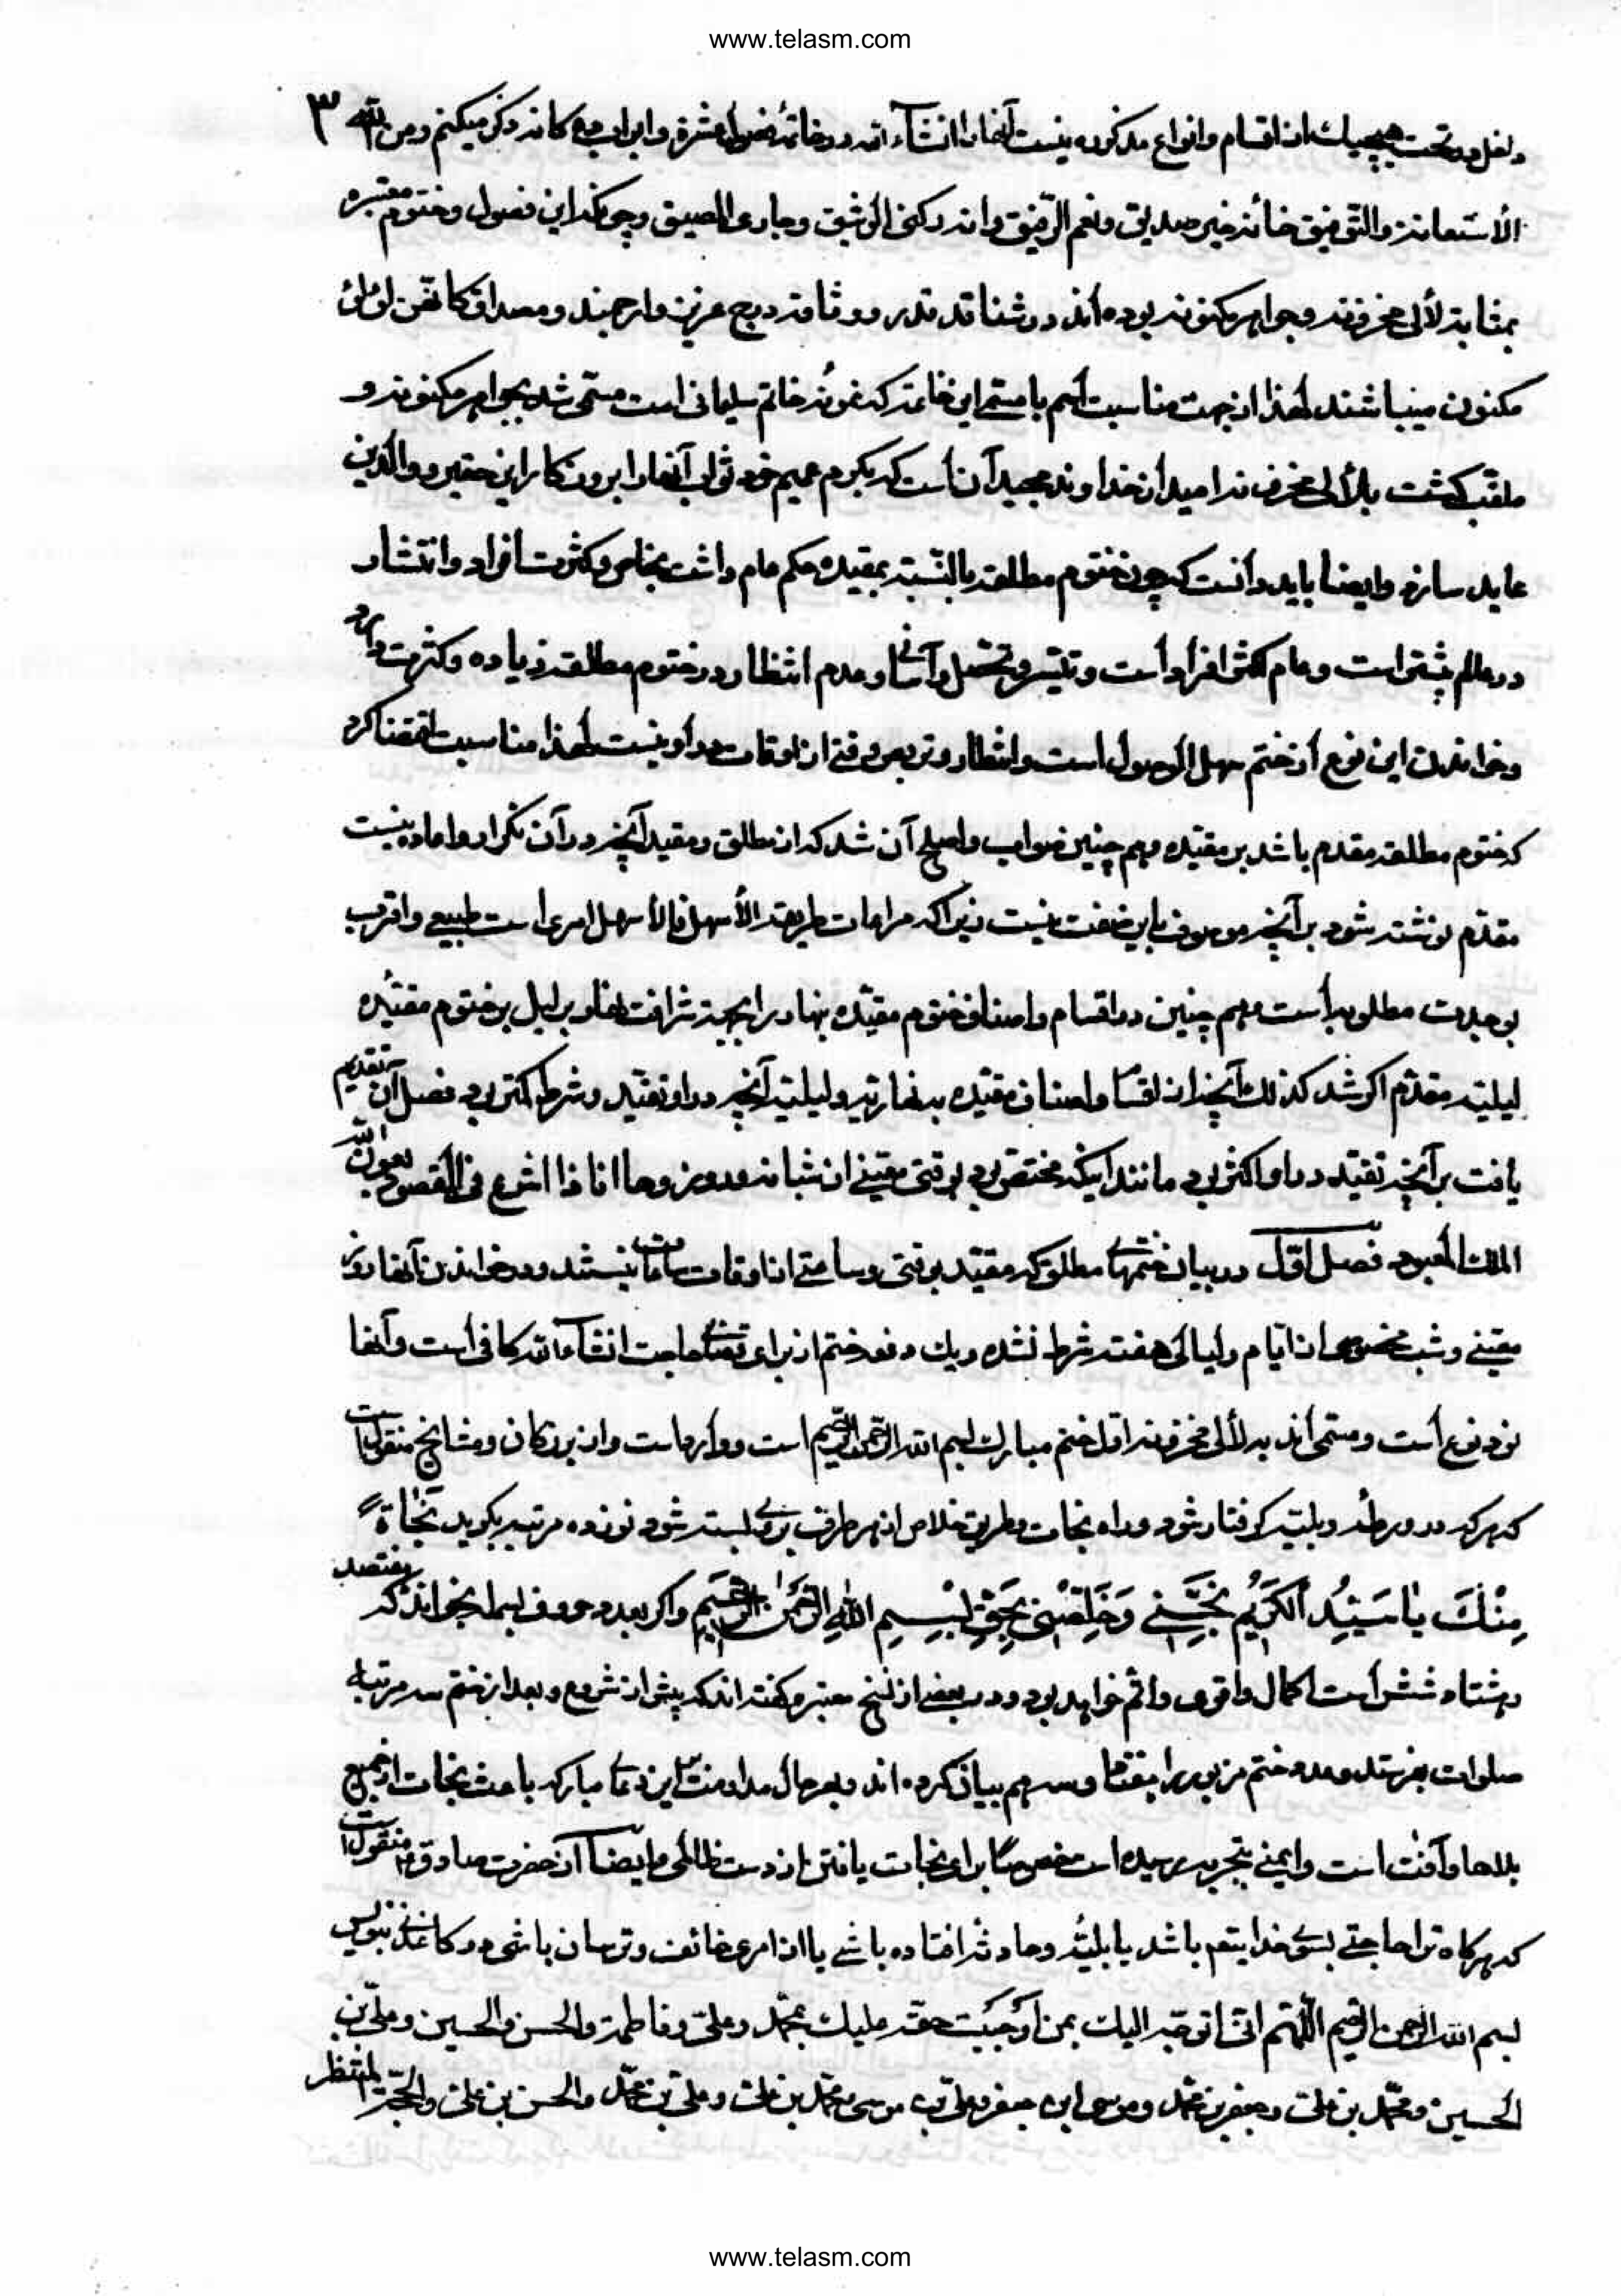 www.telasm.com
۳
داخل در تحت هیچیك از اقسام و انواع مذکوره نیست آنها را انشاء الله در خاتمهٔ فصول عشره و ابواب مع کانه ذکر میکنم و من الله
الأستعانة والتّوفیق فانّه خیر صدیق و نعم الرّفیق وانه رکنی الوثیق و جاری اللصیق و چونکه این فصول و ختوم معتبره
بمثابهٔ لألی مخزونه و جواهر مکنونه بوده‌اند در شناخت قدر و در درج عزیز و ارجمند و مصداق کانهّن لؤلؤ
مکنون میباشند لهذا از جهت مناسبت اسم با مسمّی این خاتمه که نمونهٔ خاتم سلیمانی است مسمّی شد بجواهر مکنونه و
ملقّب گشت بلألی مخزونه امید از خداوند مجید آن است که بکرم عمیم خود ثواب آنها را بروزگار این حقیر و والدین
عاید سازد و ایضا باید دانست که چون ختوم مطلقه بالنّسبة بمقیده حکم عام داشت بخاص و کثرت افراد و انتشار
در عالم بیشتر است و عام اکثر افراد است و تیسر و تحصل و آسانی و عدم انتظار در ختوم مطلقه زیاده و کثرت دارد
و خواندن این نوع از ختم سهل الوصول است و انتظار و تربص وقتی از اوقات در او نیست لهذا مناسبت اقتضا کرد
که ختوم مطلقه مقدم باشد بر مقیده و هم چنین صواب و اصلح آن شد که از مطلق و مقید آنچه در آن تکرار و اعاده نیست
مقدّم نوشته شود بر آنچه موصوف باین صفت نیست زیرا که مراعات طریقهٔ الأسهل فالأسهل امری است طبیعی و اقرب
بوجدت مطلوبه است و هم چنین در اقسام و اصناف ختوم مقیّده نهاریه را بجهة شرافت نهار بر لیل بر ختوم مقیّده
لیلیّه مقدّم اگر شد کذلك آنچه از اقسام و اصناف مقیّده به نهاریه و لیلیّه آنچه در او تقیّد و شرط کمتر بود فصل آن تقدیم
یافت بر آنچه تقیّد در او اکثر بود مانند اینکه مختص بود بوقتی معیّنی از شبانه‌روز و ها انا ذا اشرع فی المقصود بعون الله
الملك المعبود فصل اوّل در بیان ختمهای مطلق که مقیّد بوقتی و ساعتی از اوقات ساعات نیستند و در خواندن آنها روز
معیّنی و شب مخصوصی از ایّام و لیالی هفته شرط نشده و یك دفعه ختم از برای قضای حاجت انشاء الله کافی است و آنها
نود نوع است و مسمّی‌اند به لألی مخزونه اوّل ختم مبارك بسم الله الرّحمن الرّحیم است و از بزرگان و مشایخ منقول است
که هر که در ورطه و بلیّه گرفتار شود و راه نجات و طریق خلاص از هر طرف بروی بسته شود نوزده مرتبه بگوید نَجاةً
مِنْكَ یا سَیِّدُ الْکَریمُ نَجِّنی وَ خَلِّصْنی بِحَقِّ بِسْمِ اللهِ الرَّحْمٰنِ الرَّحیمِ و اگر بعدد حروف بسمله بخواند که هفتصد
و هشتاد و شش است اکمال و اقوی و اتم خواهد بود و در بعضی از نسخ معتبره گفته‌اند که پیش از شروع و بعد از ختم سه مرتبه
صلوات بفرستد و عدد ختم مزبوره را هفتاد و سه هم بیان کرده‌اند و بهر حال مداومت این دعای مبارکه باعث نجات از جمیع
بلاها و آفت است و ایمنی بتجربه رسیده است مخصوصاً برای نجات یافتن از دست ظالمی و ایضاً از حضرت صادق ع منقول است
که هر گاه ترا حاجتی بسوی خدایتعم باشد یا بلیّه و حادثه افتاده باشی یا از امری خائف و ترسان باشی در کاغذی بنویس
بسم الله الرّحمن الرّحیم اللّهمّ انّی اتوجّه الیك بمن اَوْجَبْتَ حقّه علیك محمّد و علیّ و فاطمة والحسن والحسین و علیّ بن
الحسین و محمّد بن علیّ و جعفر بن محمّد و موسی ابن جعفر و علیّ بن موسی و محمّد بن علیّ و علیّ بن محمّد والحسن بن علیّ والحجّة المنتظر
www.telasm.com